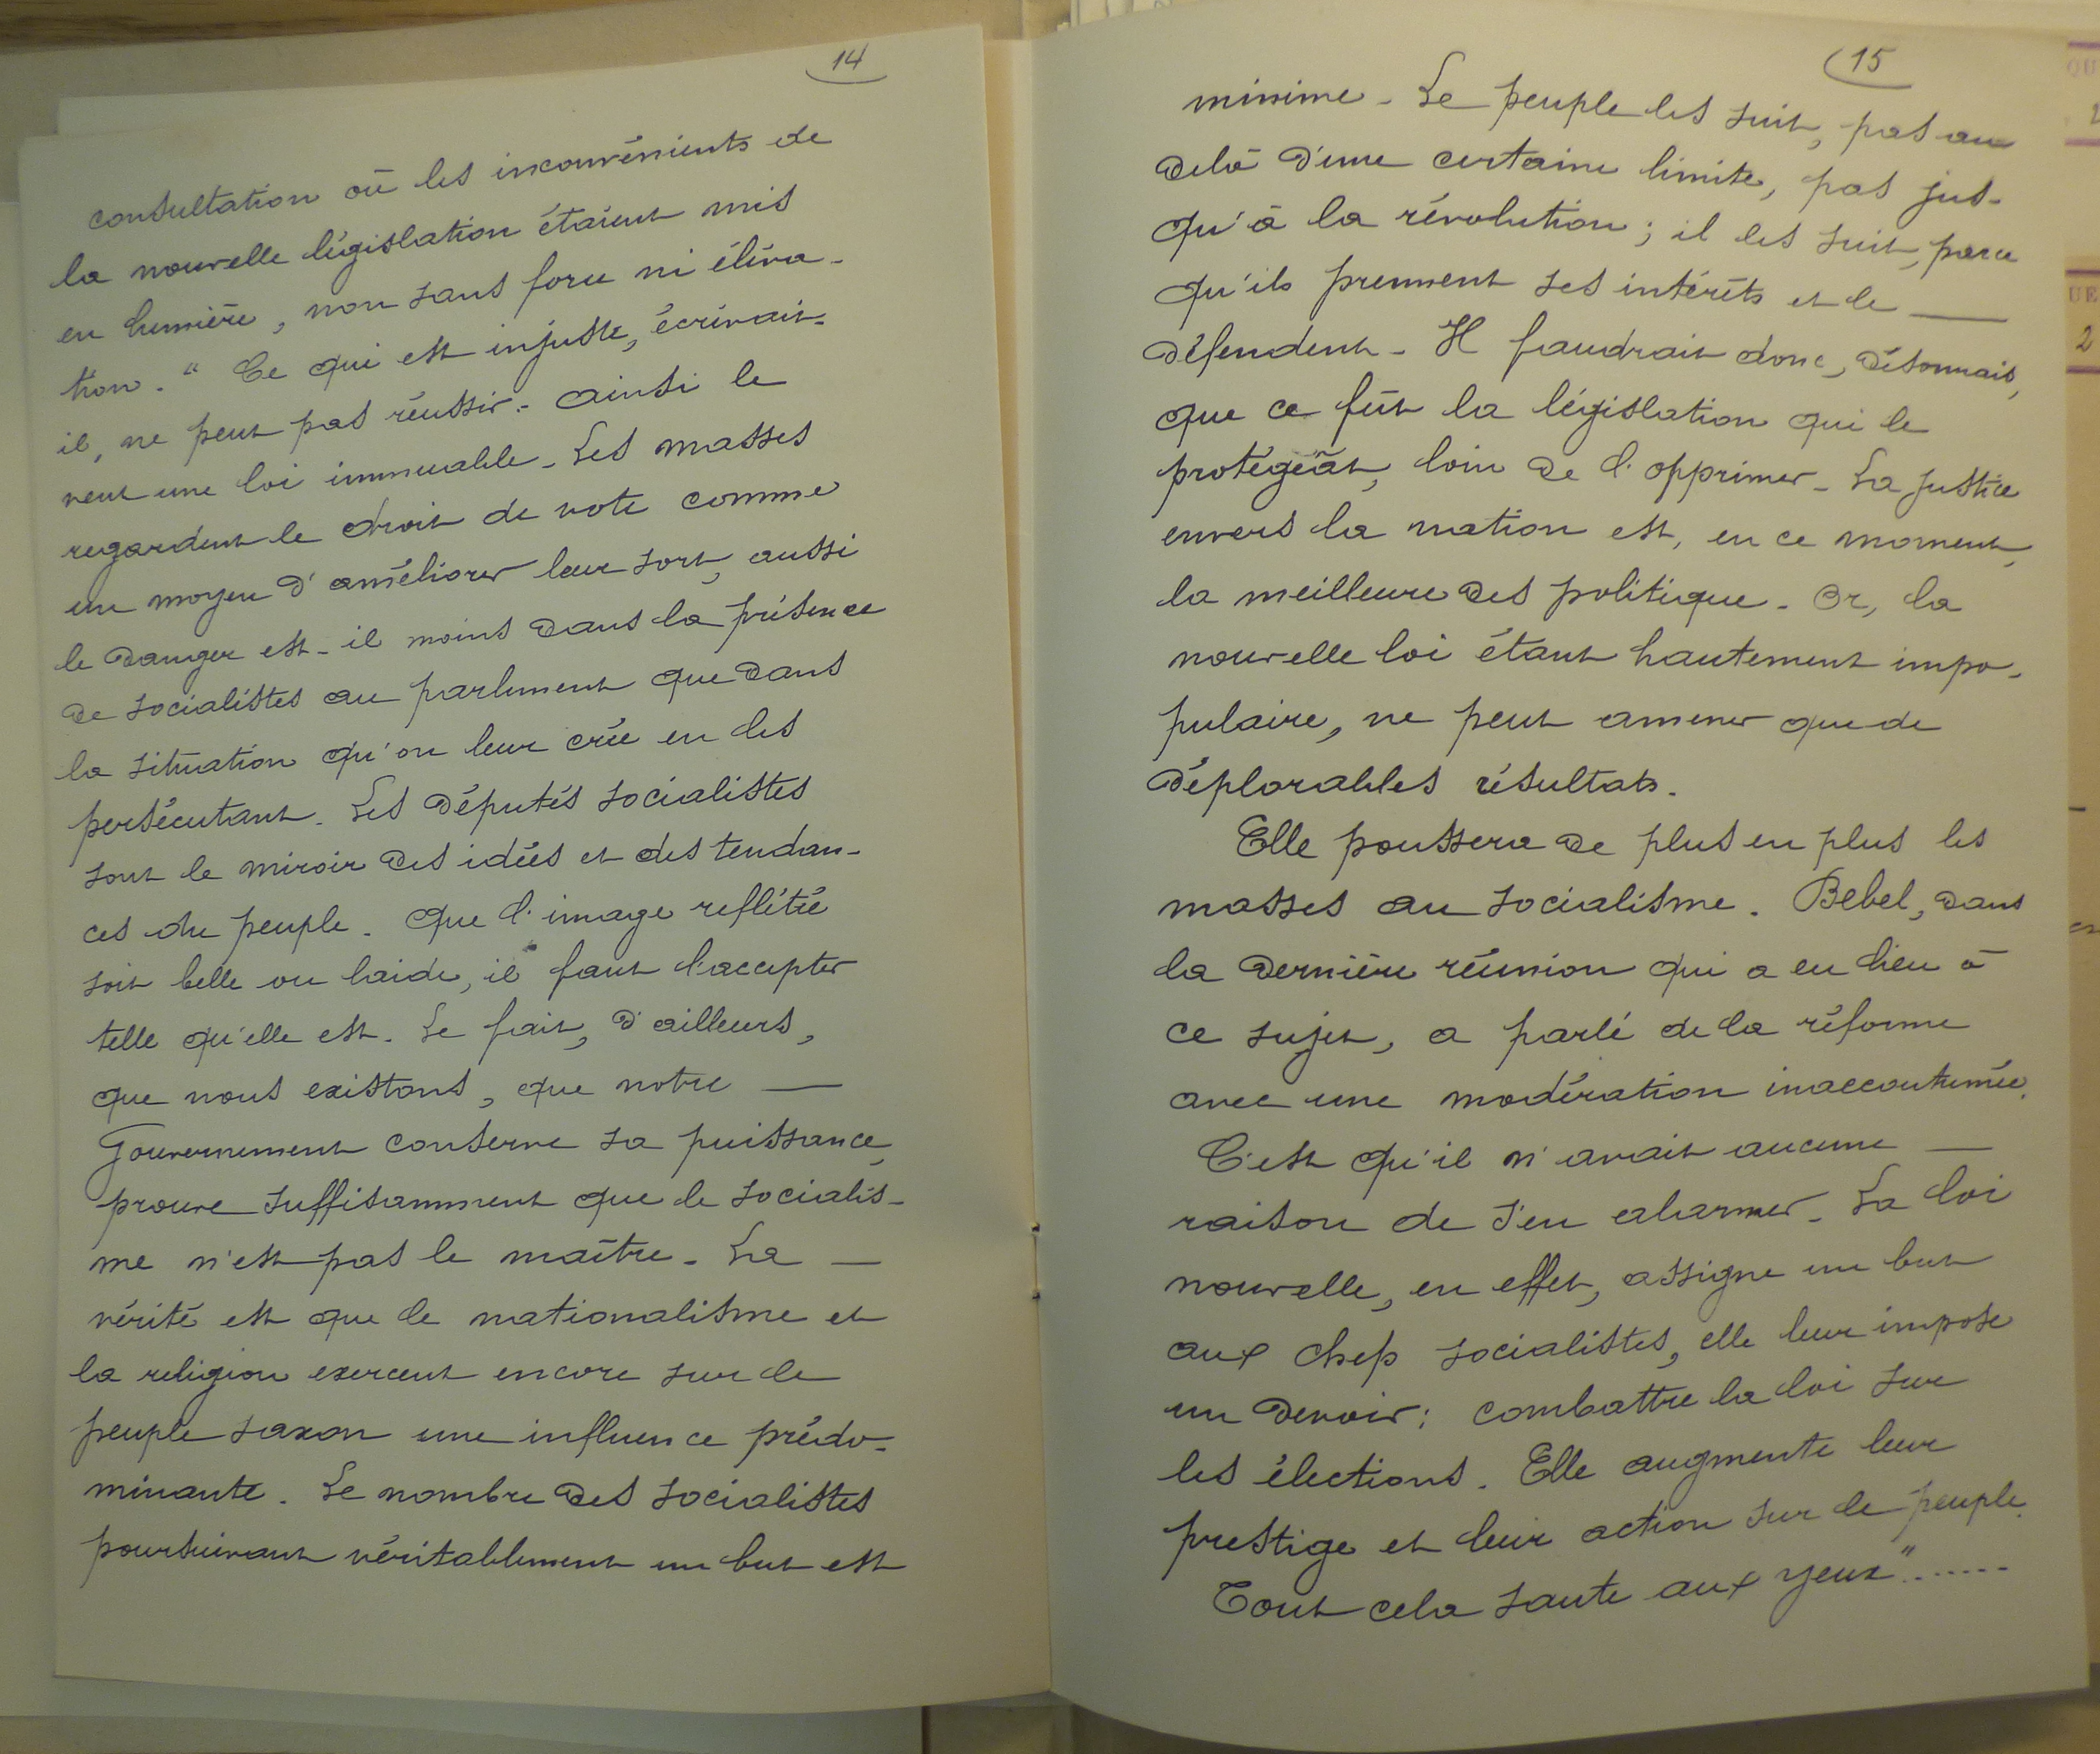 14
consultation où les inconvénients de
la nouvelle législation étaient mis
en lumière, non sans force ni éléva-
tion. " Ce qui est injuste, écrivait-
il, ne peut pas réussir. Ainsi le
veut une loi immuable. Les masses
regardent le droit de vote comme
un moyen d'améliorer leur sort, aussi
le danger est-il moins dans la présence
de socialistes au parlement que dans
la situation qu'on leur crée en les
persécutant. Les députés socialistes
sont le miroir des idées et des tendan-
ces du peuple. Que l'image reflétée
soit belle ou laide, il faut l'accepter
telle qu'elle est. Le fait, d'ailleurs,
que nous existons, que notre —
Gouvernement conserve sa puissance,
prouve suffisamment que le socialis-
me n'est pas le maître. La —
vérité est que le nationalisme et
la religion exercent encore sur le
peuple saxon une influence prédo-
minante. Le nombre des socialistes
poursuivant véritablement un but est
15
minime. Le peuple les suit, pas au
delà d'une certaine limite, pas jus-
qu'à la révolution; il les suit, parce
qu'ils prennent ses intérêts et le —
défendent. Il faudrait donc, désormais,
que ce fût la législation qui le
protégeât, loin de l'opprimer. La justice
envers la nation est, en ce moment,
la meilleure des politique. Or, la
nouvelle loi étant hautement impo-
pulaire, ne peut amener que de
déplorables résultats.
Elle poussera de plus en plus les
masses au socialisme. Bebel, dans
la dernière réunion qui a eu lieu à
ce sujet, a parlé de la réforme
avec une modération inaccoutumée.
C'est qu'il n'avait aucune —
raison de s'en alarmer. La loi
nouvelle, en effet, assigne un but
aux chefs socialistes, elle leur impose
un devoir: combattre la loi sur
les élections. Elle augmente leur
prestige et leur action sur le peuple.
Tout cela saute aux yeux".......
QU
UE
2